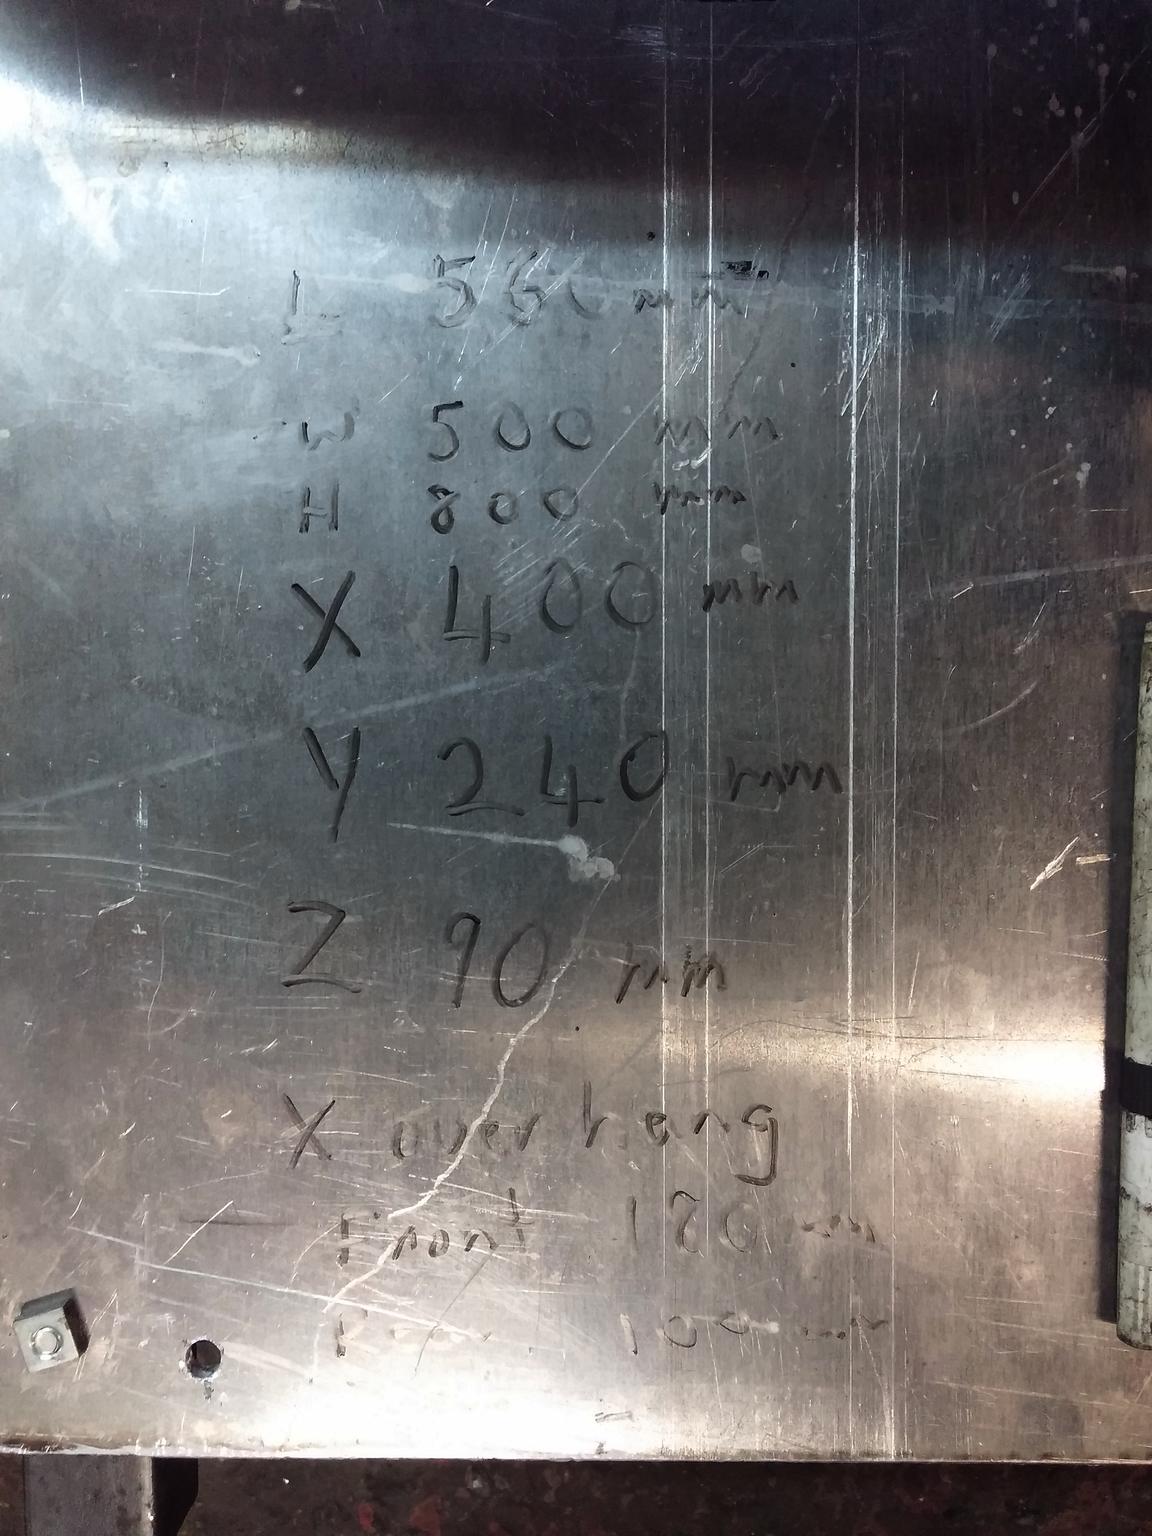 L 560 mm
W 500 mm
H 800 mm
X 400 mm
Y 240 mm
Z 90 mm
X over hang
Front mm
100 mm